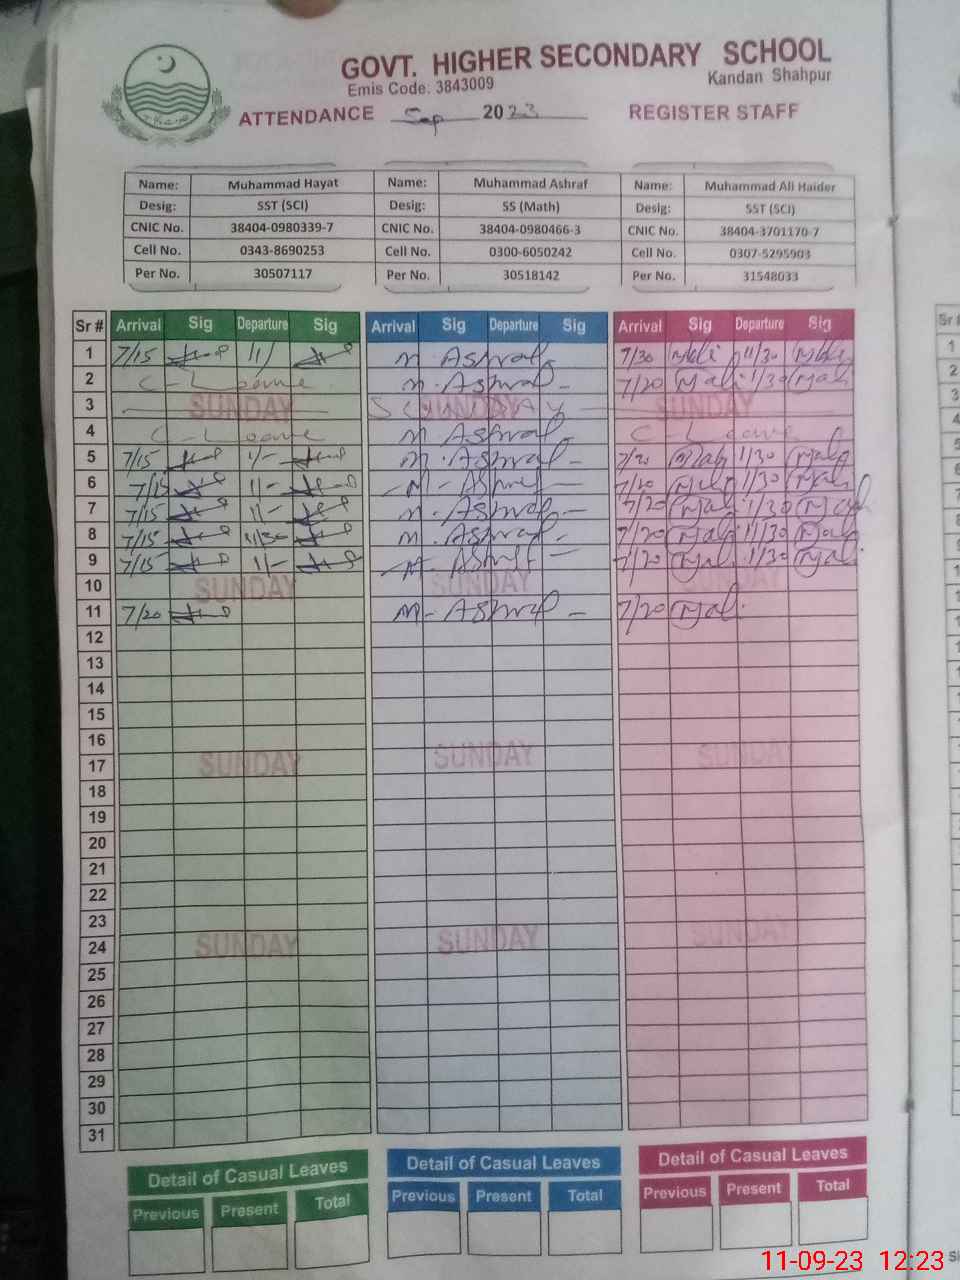 GOVT. HIGHER SECONDARY SCHOOL
Emis Code: 3843009 Kandan Shahpur
ATTENDANCE Sep 2023 REGISTER STAFF
Name: Muhammad Hayat Name: Muhammad Ashraf Name: Muhammad Ali Haider
Desig: SST (SCI) Desig: SS (Math) Desig: SST (SCI)
CNIC No. 38404-0980339-7 CNIC No. 38404-0980466-3 CNIC No. 38404-3701170-7
Cell No. 0343-8690253 Cell No. 0300-6050242 Cell No. 0307-5295903
Per No. 30507117 Per No. 30518142 Per No. 31548033
Sr # Arrival Sig Departure Sig Arrival Sig Departure Sig Arrival Sig Departure Sig
1 7/15 11/ M. Ashraf 7/30 11/30
2 C-Leave M. Ashraf - 7/20 Mali 1/30 Mali
3 SUNDAY SUNDAY SUNDAY
4 C-Leave M. Ashraf - C-Leave
5 7/15 1/- M. Ashraf - 7/20 Mali 1/30 Mali
6 7/15 11- M - Ashraf 7/20 Mali 1/30 Mali
7 7/15 11- M. Ashraf - 7/20 Mali 1/30 Mali
8 7/15 11/30 M. Ashraf - 7/20 Mali 11/30 Mali
9 7/15 1/- M. Ashraf - 7/20 Mali 1/30 Mali
10 SUNDAY SUNDAY SUNDAY
11 7/20 M- Ashraf - 7/20 Mali
12
13
14
15
16
17 SUNDAY SUNDAY SUNDAY
18
19
20
21
22
23
24 SUNDAY SUNDAY SUNDAY
25
26
27
28
29
30
31
Detail of Casual Leaves Detail of Casual Leaves Detail of Casual Leaves
Previous Present Total Previous Present Total Previous Present Total
11-09-23 12:23